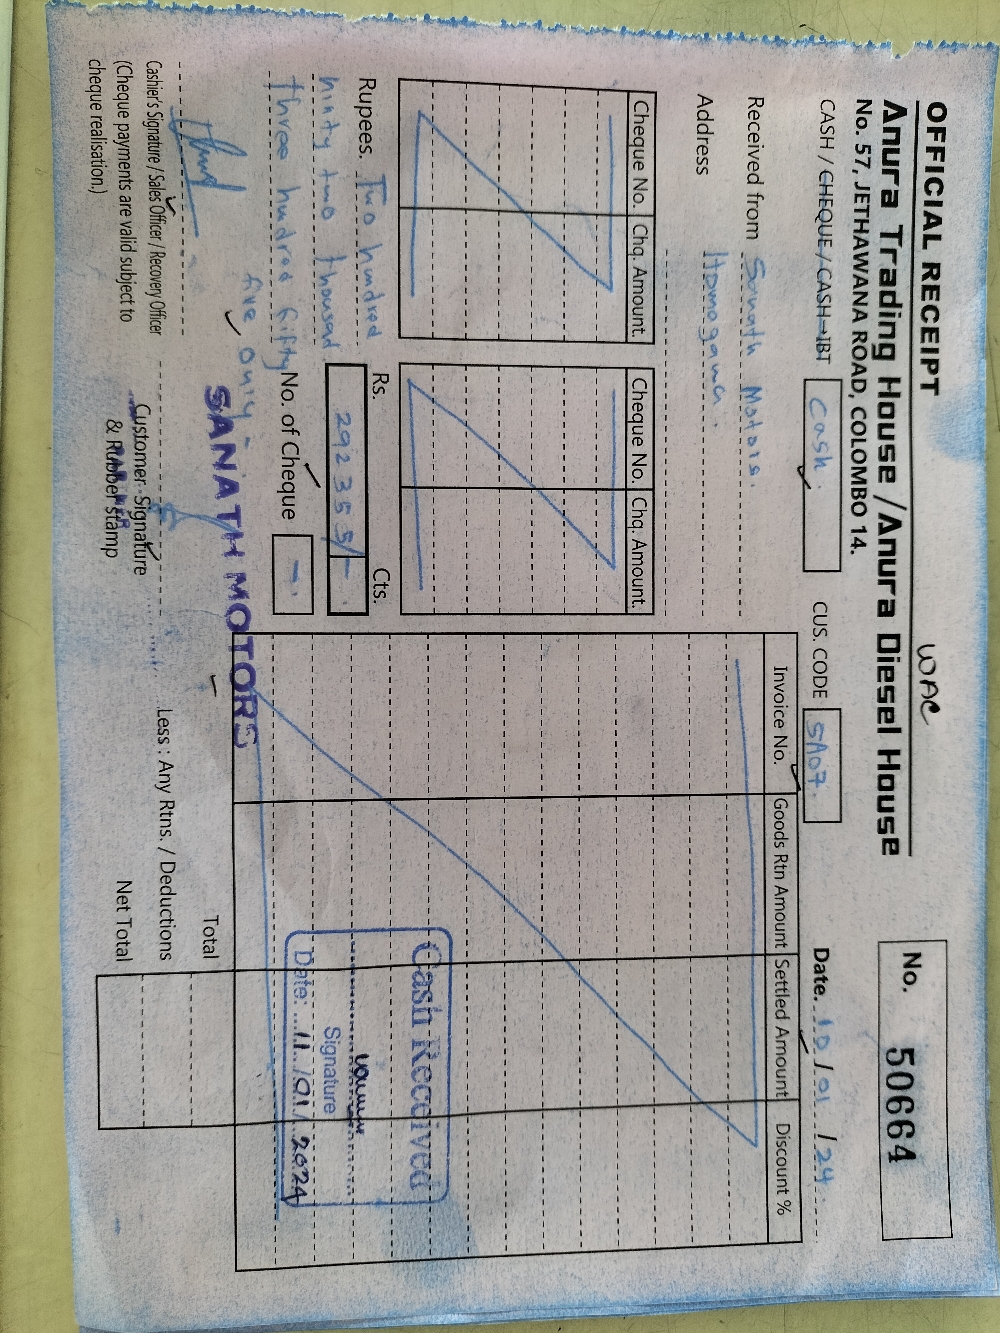 OFFICIAL RECEIPT
WAC
Anura Trading House / Anura Diesel House
No. 57, JETHAWANA ROAD, COLOMBO 14.
No. 50664
CASH / CHEQUE / CASH→IBT Cash. CUS. CODE SA07. Date. 10/01/24
Received from Sanath Motors.
Address Homagama.
Cheque No. Chq. Amount. Cheque No. Chq. Amount.
Invoice No. Goods Rtn Amount Settled Amount Discount %
Rupees. Two hundred
ninty two thousad
three hundred fifty
five only
Rs. Cts.
292 355/-
No. of Cheque -
Cash Received
Signature
Date: 11/01/2024
SANATH MOTORS
Cashier's Signature / Sales Officer / Recovery Officer
(Cheque payments are valid subject to
cheque realisation.)
Customer Signature
& Rubber stamp
Total
Less : Any Rtns. / Deductions
Net Total